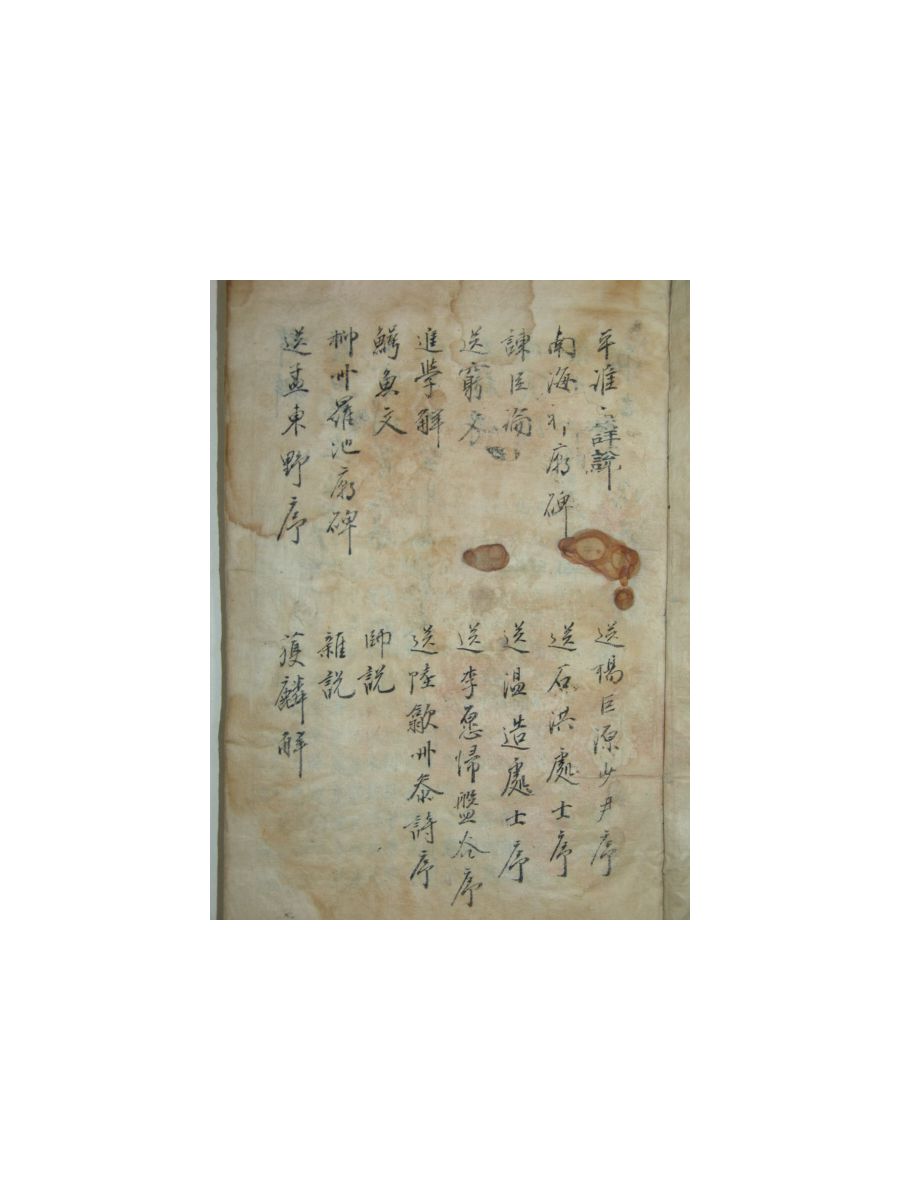 平淮
南海神廟碑
諫臣論
送窮文
進學解
鱷魚文
柳州羅池廟碑
送孟東野序
送楊巨源少尹序
送石洪處士序
送温造處士序
送李愿歸盤谷序
送陸歙州叅詩序
師説
雜説
獲麟解